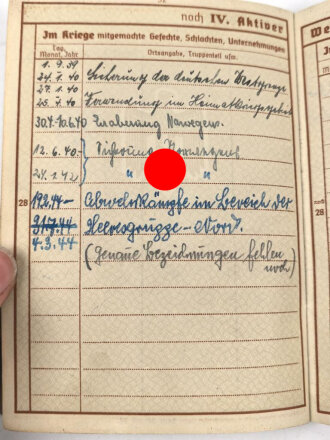 noch IV. Aktiver
Im Kriege mitgemachte Gefechte, Schlachten, Unternehmungen
Tag, Monat, Jahr
Ortsangabe, Truppenteil usw.
1. 9. 39
24. 1. 40 Sicherung der deutschen Westgrenze
27. 1. 40
25. 4. 40 Verwendung im Heimatkriegsgebiet
30.4.-10.6.40 Eroberung Norwegens
12. 6. 40- Sicherung Norwegens
24. 1. 42 " "
28
19.2.44- Abwehrkämpfe im Bereich der
31.7.44 Heeresgruppe-Nord.
4.3.44 (genaue Bezeichnungen fehlen
noch)
We
28